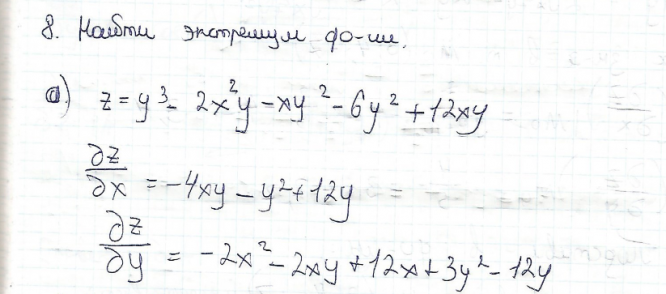 8. Найти экстремум ф-ии.
a.) z = y³ - 2x²y - xy² - 6y² + 12xy
∂z/∂x = -4xy - y² + 12y
∂z/∂y = -2x² - 2xy + 12x + 3y² - 12y